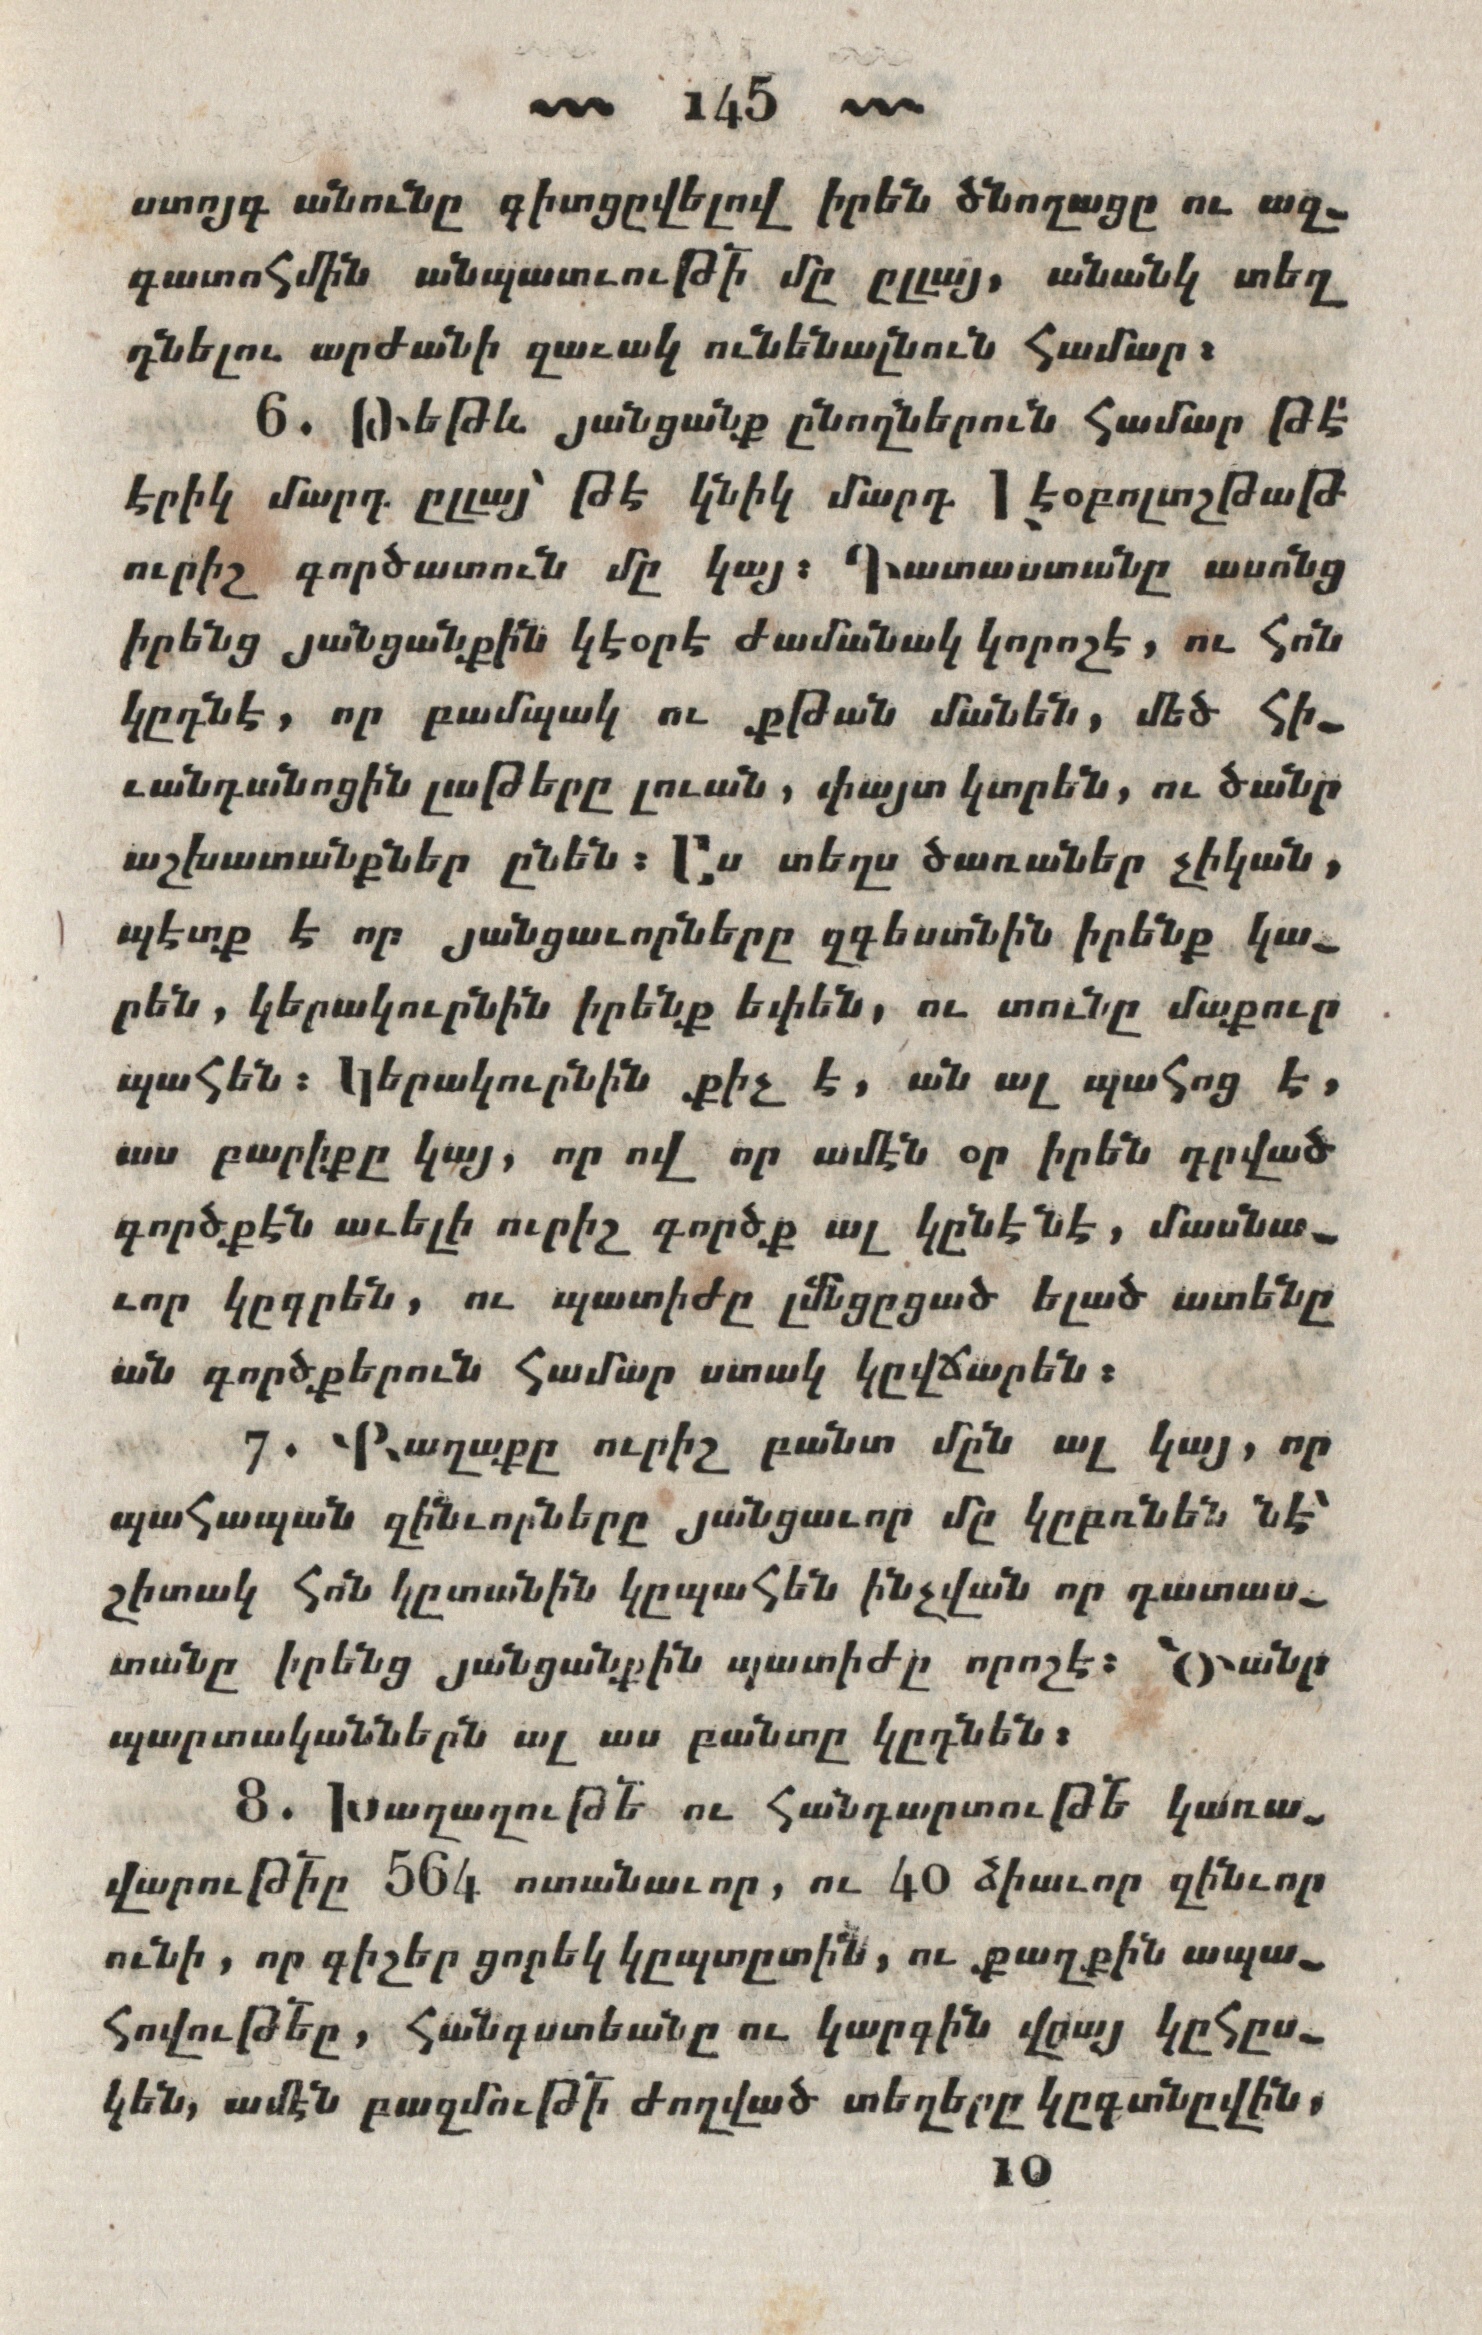 145
ստոյգ անունը գիտցըվելով իրեն ծնողացը ու ազ-
գատոհմին անպատւութի՜ մը ըլլայ, անանկ տեղ
դնելու արժանի զաւակ ունենալնուն համար։
6. Թեթև յանցանք ընողներուն համար թէ՛
էրիկ մարդ ըլլայ՝ թէ կնիկ մարդ Լէօբոլտշթաթ
ուրիշ գործատուն մը կայ։ Դատաստանը ասոնց
իրենց յանցանքին կէօրէ ժամանակ կորոշէ, ու հոն
կըդնէ, որ բամպակ ու քթան մանեն, մեծ հի-
ւանդանոցին լաթերը լուան, փայտ կտրեն, ու ծանր
աշխատանքներ ընեն։ Աս տեղս ծառաներ չիկան,
պէտք է որ յանցաւորները զգեստնին իրենք կա-
րեն, կերակուրնին իրենք եփեն, ու տունը մաքուր
պահեն։ Կերակուրնին քիչ է, ան ալ պահոց է,
աս բարիքը կայ, որ ով որ ամէն օր իրեն դրված
գործքէն աւելի ուրիշ գործք ալ կընէ նէ, մասնա-
ւոր կըգրեն, ու պատիժը լմնցըցած ելած ատենը
ան գործքերուն համար ստակ կըվճարեն։
7. Քաղաքը ուրիշ բանտ մըն ալ կայ, որ
պահապան զինւորները յանցաւոր մը կըբռնեն նէ՝
շիտակ հոն կըտանին կըպահեն ինչվան որ դատաս-
տանը իրենց յանցանքին պատիժը որոշէ։ Ծանր
պարտականներն ալ աս բանտը կըդնեն։
8. Խաղաղութե՜ ու հանդարտութե՜ կառա-
վարութի՜ը 564 ոտանաւոր, ու 40 ձիաւոր զինւոր
ունի, որ գիշեր ցորեկ կըպտըտին, ու քաղքին ապա-
հովութե՜ը, հանգստեանը ու կարգին վրայ կըհըս-
կեն, ամէն բազմութի՜ ժողված տեղերը կըգտնըվին,
10